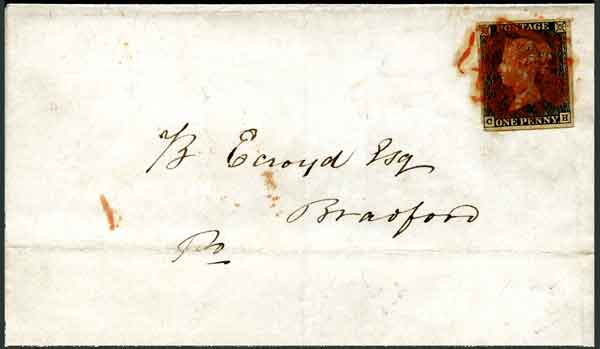 POSTAGE
C ONE PENNY H
B Ecroyd Esq
Bradford